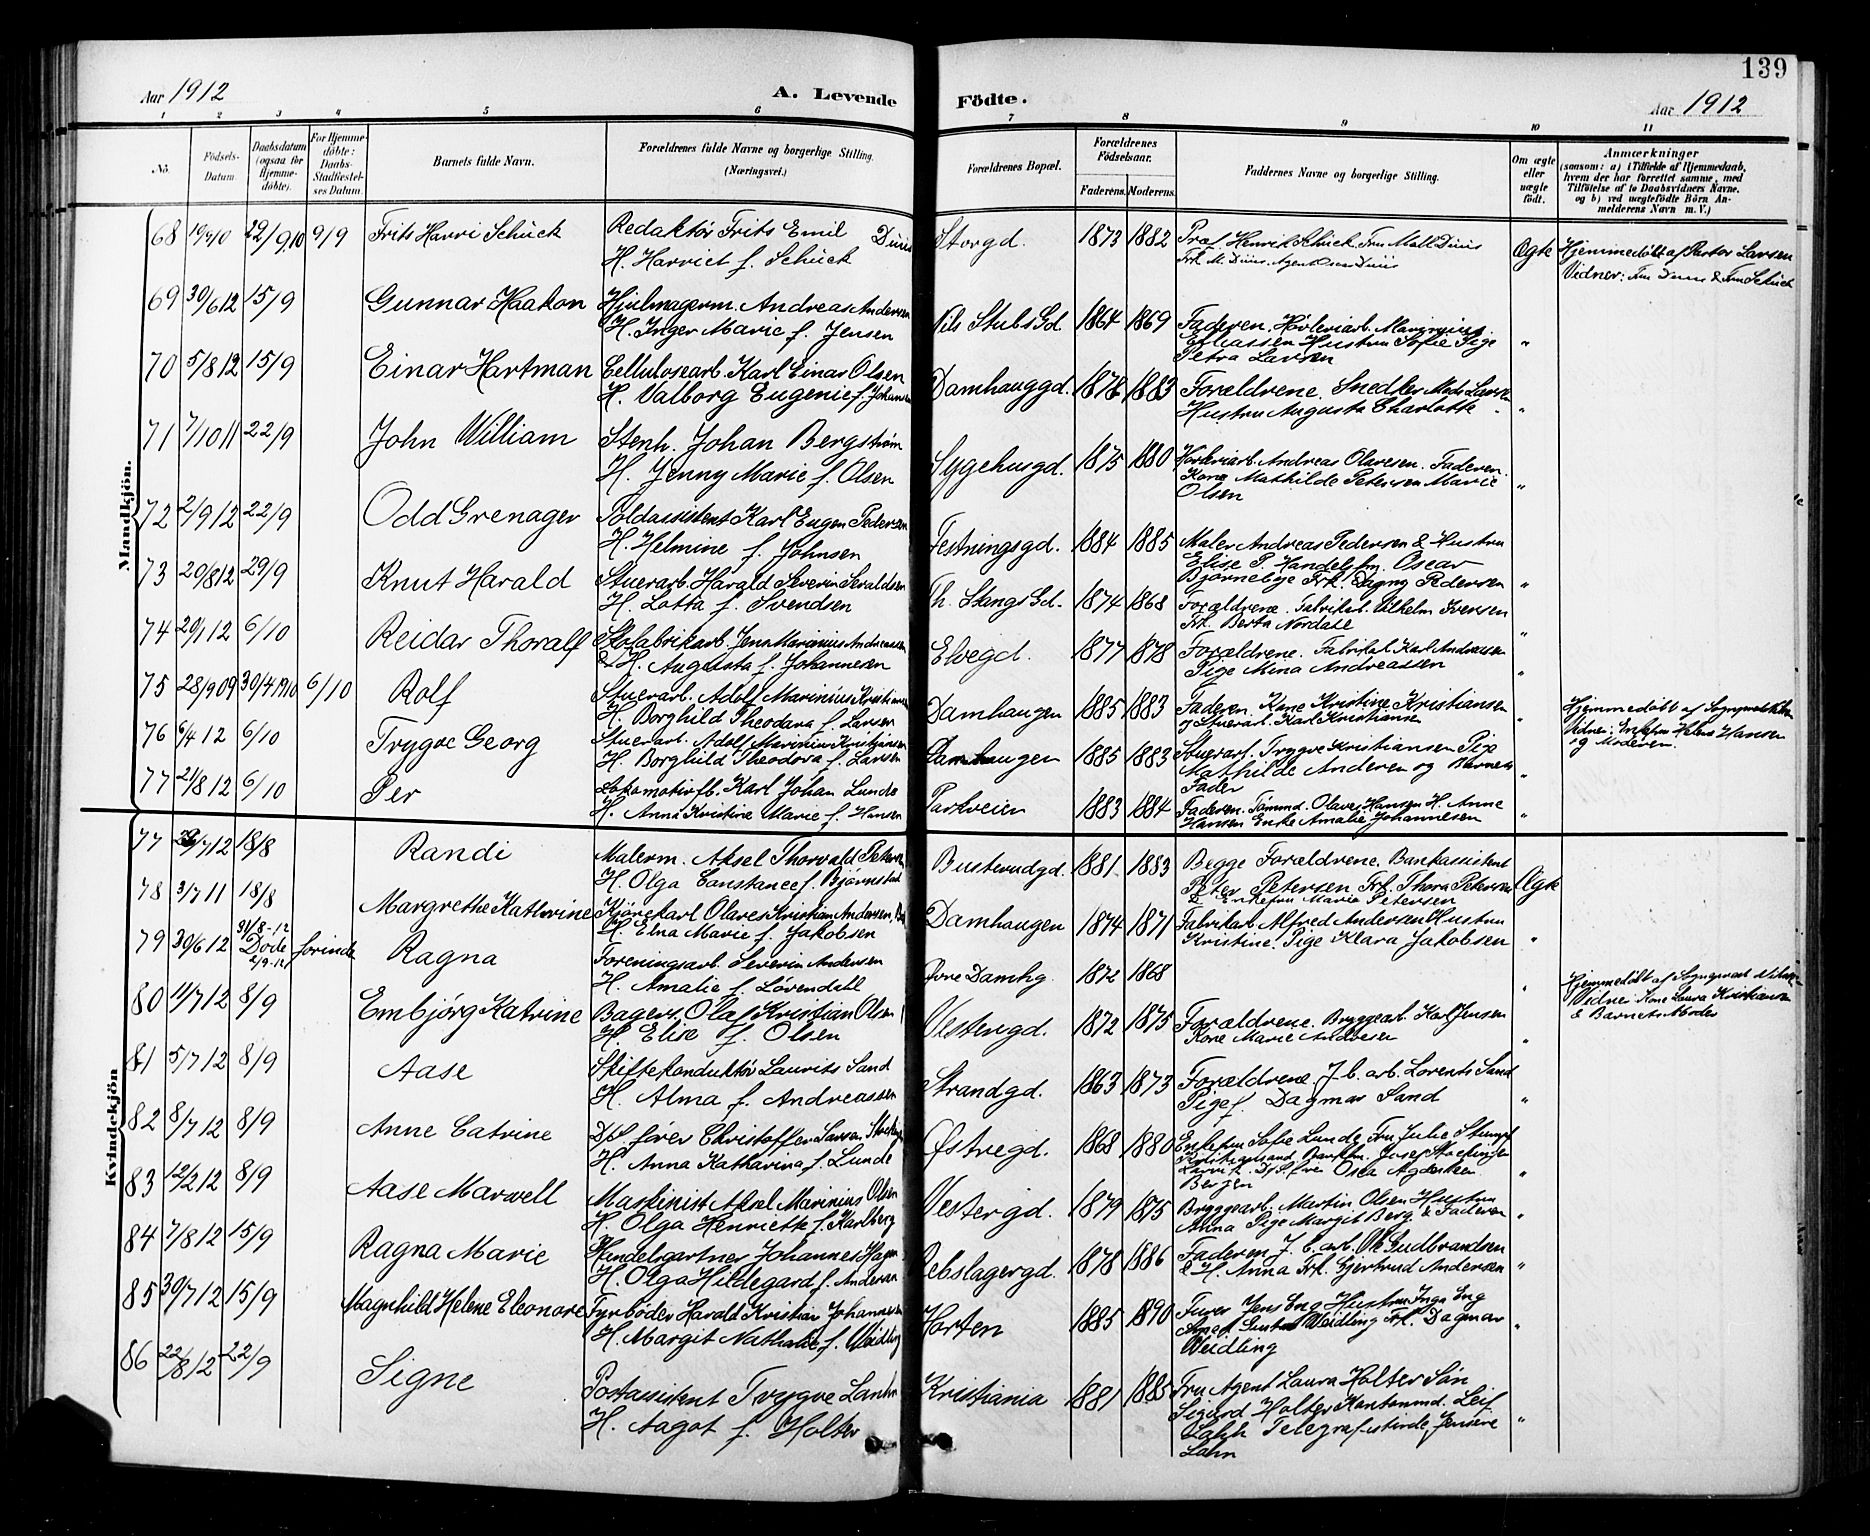 139
Aar 1912
A. Levende Födte.
Aar 1912
1 2 3 4 5 6 7 8 9 10 11
No.
Födsels-Datum.
Daabsdatum (ogsaa for Hjemme-döbte).
For Hjemme-döbte: Daabs-Stadfæstel-ses Datum.
Barnets fulde Navn.
Forældrenes fulde Navne og borgerlige Stilling. (Næringsvei.)
Forældrenes Bopæl.
Forældrenes Födselsaar.
Faderens. Moderens.
Faddernes Navne og borgerlige Stilling.
Om ægte eller uægte födt.
Anmærkninger
(saasom: a) i Tilfælde af Hjemmedaab, hvem der har forrettet samme, med Tilföielse af to Daabsvidners Navne, og b) ved uægtefödte Börn An-melderens Navn m. V.)
Mandkjön.
68 19/9 10 22/9 10 9/9 Frits Harri Schück Redaktör Frits Emil Duus Storgd. 1873 1882 Prof. Henrik Schück. Fru Duus Ægte Hjemmedöbt af Pastor Larsen
H. Harriet f. Schück Frk M. Duus. Agent Duus Vidner: Fru Duus & Fru Schück
69 30/6 12 15/9 Gunnar Haakon Hjulmagerm. Andreas Andersen Nils Stubs Gd. 1864 1869 Faderen. Høvleriarb.
H. Inger Marie f. Jensen Hustru Sofie Pige "
Petra Larsen
70 5/8 12 15/9 Einar Hartman Cellulosearb. Karl Einar Olsen Damhauggd. 1878 1883 Forældrene. Snedker Mads Larsen
H. Valborg Eugenie f. Johansen Hustru Augusta Charlotte "
71 7/10 11 22/9 John William Stenh. Johan Bergström Sygehusgd. 1875 1880 Høvleriarb. Andreas Olavesen. Faderen.
H. Jenny Marie f. Olsen Kone Mathilde Petersen Marie
Olsen "
72 2/9 12 22/9 Odd Grenager Toldassistent Karl Eugen Pedersen Festningsgd. 1884 1885 Maler Andreas Pedersen & Hustru
H. Helmine f. Johnsen Elise P. Handelsfm. Oscar
Bjørnebye Frk. Dagny Pedersen "
73 20/8 12 29/9 Knut Harald Stuerarb. Harald Severin Sevaldsen Th. Stangs Gd. 1874 1868 Forældrene. Fabrikarb. Vilhelm Svensen
H. Lotta f. Svendsen Frk. Berta Nordahl "
74 29/1 12 6/10 Reidar Thoralf Skofabrikarb. Jens Marinius Andreassen Elvegd. 1877 1878 Forældrene. Fabrikarb. Karl Andreassen
& H. Augusta f. Johannesen Pige Mina Andreassen "
75 28/9 09 30/4 1910 6/10 Rolf Stuerarb. Adolf Marinius Kristiansen Damhaugen 1885 1883 Faderen. Kone Kristine Kristiansen " Hjemmedöbt af
H. Borghild Theodora f. Larsen og Stuerarb. Karl Kristiansen Vidner: Enkefru Helene Hansen
og Moderen.
76 6/4 12 6/10 Trygve Georg Stuerarb. Adolf Marinius Kristiansen Damhaugen 1885 1883 Stuerarb. Trygve Kristiansen Pige
H. Borghild Theodora f. Larsen Mathilde Andersen og Barnets
Fader "
77 21/8 12 6/10 Per Lokomotivfb. Karl Johan Lunde Parkveien 1883 1884 Faderen. Tömmd. Olaves Hansen H. Anne
H. Anna Kristine Marie f. Hansen Hansen Enke Amalie Johannesen "
Kvindekjön
77 /7 12 18/8 Randi Malerm. Aksel Thorvald Petersen Busterudgd. 1881 1883 Begge Forældrene. Bankassistent
H. Olga Constance f. Bjørnstad Peter Petersen Frk. Thora Petersen Ægte
& Enkefru Marie Petersen
78 3/7 11 18/8 Margrethe Kathrine Kjörekarl Olaves Kristian Andersen Damhaugen 1874 1871 Fabrikarb. Alfred Andersen Hustru
H. Elna Marie f. Jakobsen Kristine. Pige Klara Jakobsen "
79 30/6 12 31/8-12 Döde 2/9-12 forinden Ragna Foreningsarb. Severin Andersen Øvre Damhg. 1872 1868 " Hjemmedöbt af Sogneprest
H. Amalie f. Lövendahl Vidner: Kone Laura Kristiansen
& Barnets Moder
80 11/7 12 8/9 Embjörg Katrine Bagers. Olaf Kristian Olsen Vestergd. 1872 1875 Forældrene. Bryggearb. Karl Jensen
H. Elise f. Olsen Kone Marie Andresen "
81 5/7 12 8/9 Aase Skiftekonduktör Laurits Sand Strandgd. 1863 1873 Forældrene. J.b. arb. Lorents Sand
H. Alma f. Andreassen Pige f. Dagmar Sand "
82 8/7 12 8/9 Anne Catrine D/S. förer Christoffer Larsen Østregd. 1868 1880 Enkefru Sofie Lunde Fru Julie Stumpf
H. Anna Katharina f. Lunde Kristiansand Bankfm. Josef
Larvik. D/S. förer Oscar
Bergen "
83 12/2 12 8/9 Aase Maxwell Maskinist Aksel Marinius Olsen Vestergd. 1879 1875 Bryggearb. Martin Olsen Hustru
H. Olga Henriette f. Karlberg Anna Pige Margit Berg & Faderen "
84 7/8 12 15/9 Ragna Marie Handelsgartner Johannes Hagen Rebslagergd. 1878 1886 Faderen J.b. arb. Ole Gudbrandsen
H. Olga Hildegard f. Andersen & H. Anna Frk. Gjertrud Andersen "
85 30/7 12 15/9 Magnhild Helene Eleonore Fyrböder Harald Kristian Johannesen Horten 1885 1890 Jens Eng Hustru Inga Eng
H. Margit Nathalie f. Weidling Weidling Frk. Dagmar
Weidling "
86 22/8 12 22/9 Signe Postassistent Trygve Kristiania 1881 1885 Fru Agent Laura Holter Søn
H. Aagot f. Holter Sigurd Holter Kantonmd. Leif
Telegrafistinde "